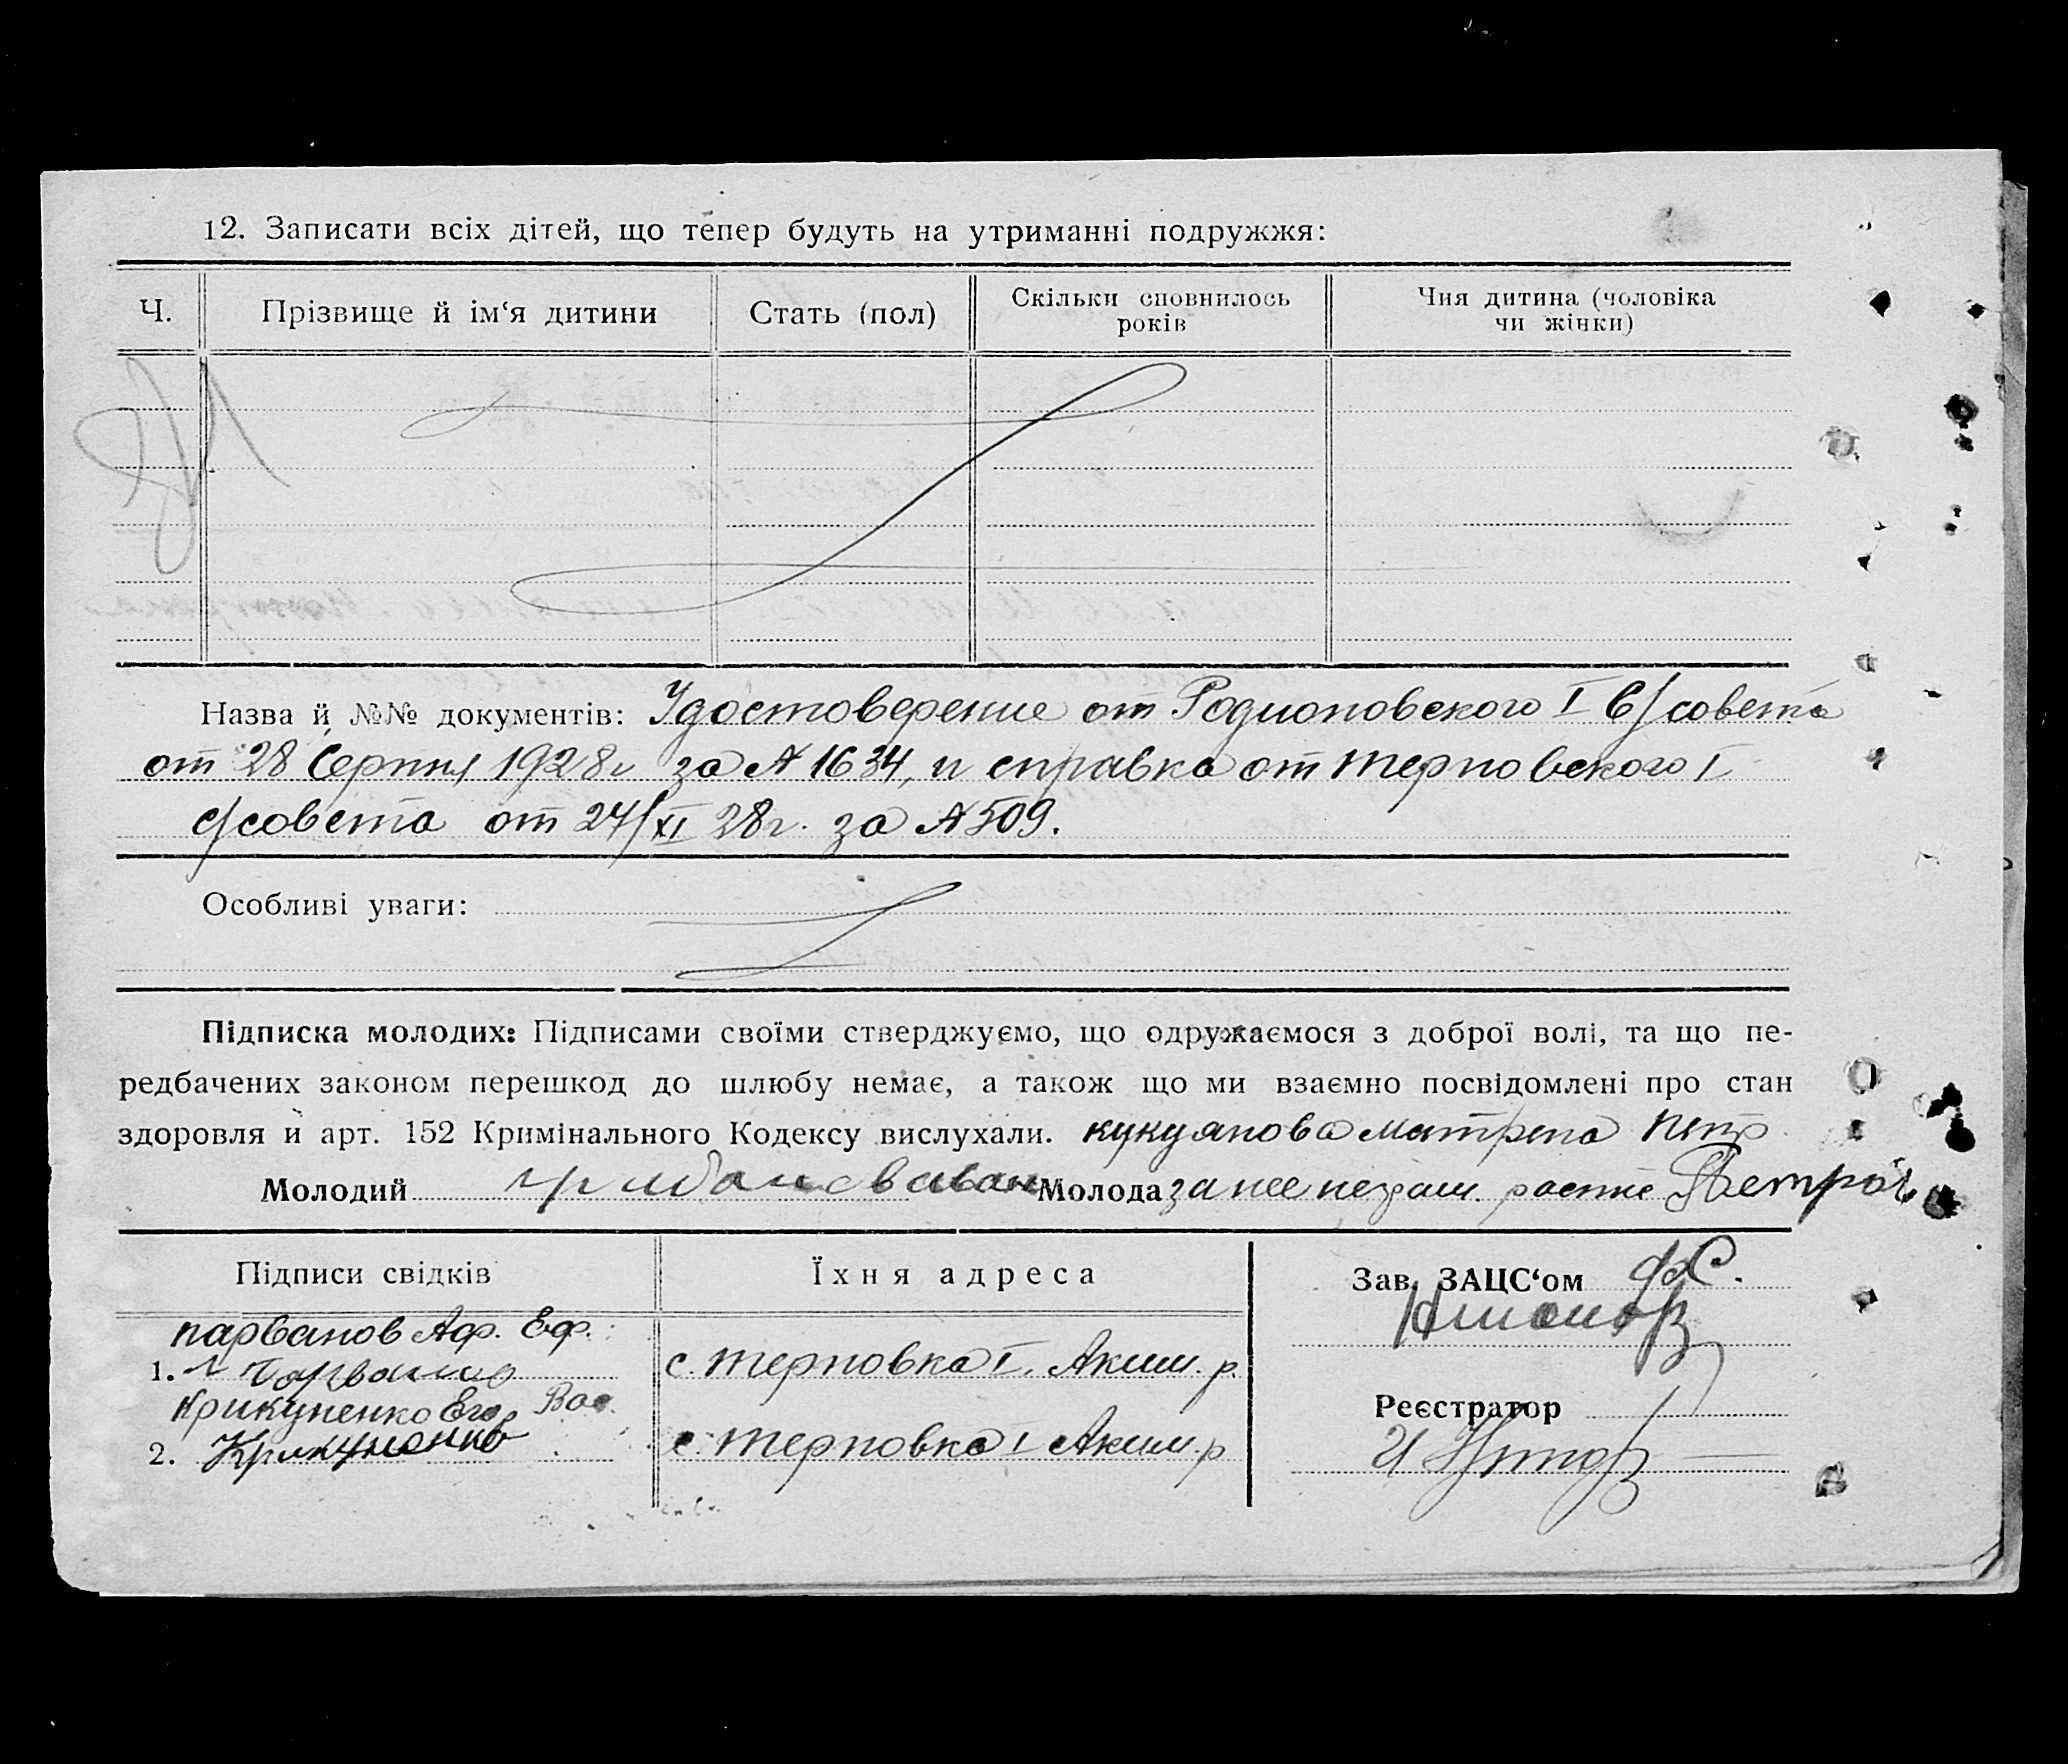 12. Записати всіх дітей, що тепер будуть на утриманні подружжя:
Ч. Прізвище й ім‘я дитини Стать (пол) Скільки сповнилось років Чия дитина (чоловіка чи жінки)
Назва й №№ документів: Удостоверение от Родионовского I С/совета
от 28 Серпня 1928г за № 1634, и справка от Терновского I
с/совета от 24/XI 28г. за № 509.
Особливі уваги:
Підписка молодих: Підписами своїми стверджуємо, що одружаємося з доброї волі, та що пе-
редбачених законом перешкод до шлюбу немає, а також що ми взаємно посвідомлені про стан
здоровля й арт. 152 Кримінального Кодексу вислухали. Кукуянова Матрена Петр
Молодий Иван Молода за нее неграм. роспис
Підписи свідків Їхня адреса Зав. ЗАЦС‘ом
Парванов Аф. Еф.
1. Парванов с. Терновка I. Аким. р.
Крикуненко Его Вас. Реєстратор
2. Крикуненко с. Терновка I Аким. р